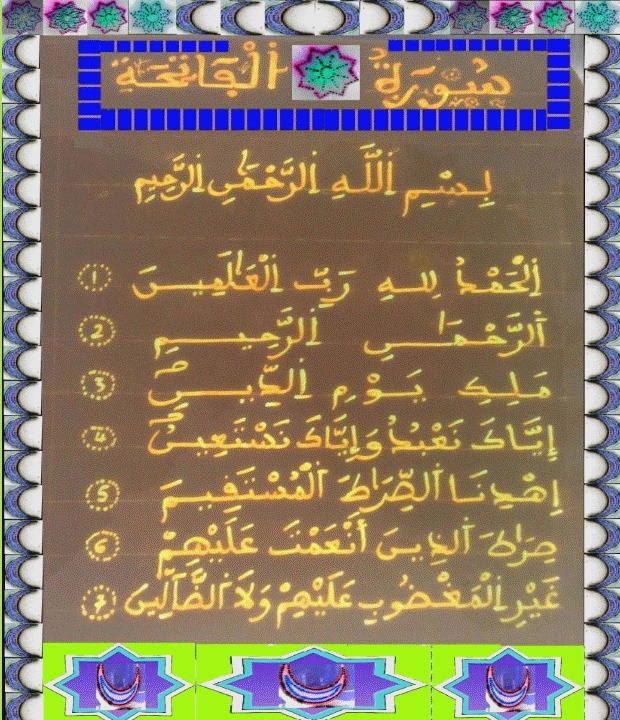 سُورَةُ الْفَاتِحَة
بِسْمِ اللَّهِ الرَّحْمَٰنِ الرَّحِيمِ
اَلْحَمْدُ لِلهِ رَبِّ الْعَٰلَمِينَ 1
اَلرَّحْمَٰنِ الرَّحِيمِ 2
مَلِكِ يَوْمِ الدِّينِ 3
إِيَّاكَ نَعْبُدُ وَإِيَّاكَ نَسْتَعِينُ 4
إِهْدِنَا اَلصِّرَٰطَ اَلْمُسْتَقِيمَ 5
صِرَٰطَ اَلذِينَ أَنْعَمْتَ عَلَيْهِمْ 6
غَيْرِ اِلْمَغْضُوبِ عَلَيْهِمْ وَلاَ اَلضَّآلِّينَ 7